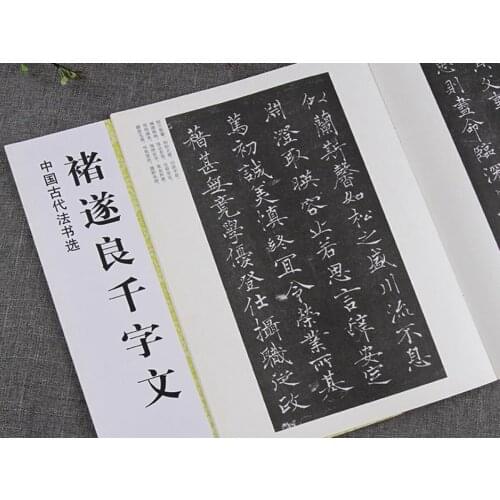 中国古代法书选
褚遂良千字文
似蘭斯馨如松之盛川流不息
淵澄取暎容止若思言辞安定
篤初誠美慎終宜令榮業所基
藉甚無竟學優登仕攝職從政
忠則盡命臨深